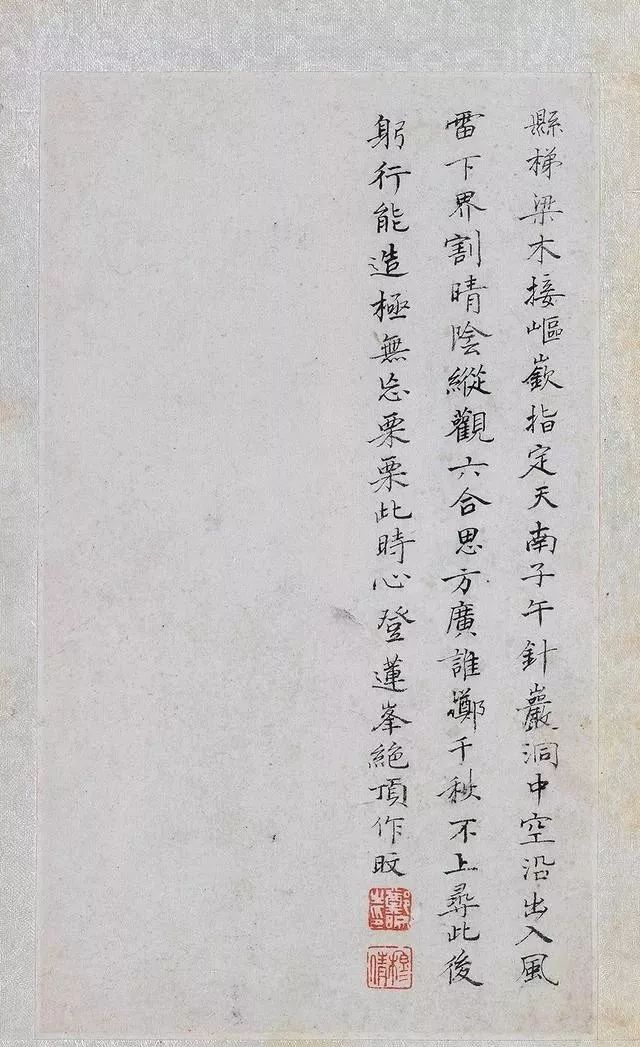 縣梯梁木接嶇嶔指定天南子午針巖洞中空沿出入風
雷下界割晴陰縱觀六合思方廣誰擲千秋不上尋此後
躬行能造極無忘栗栗此時心登蓮峯絕頂作旼
穆倩